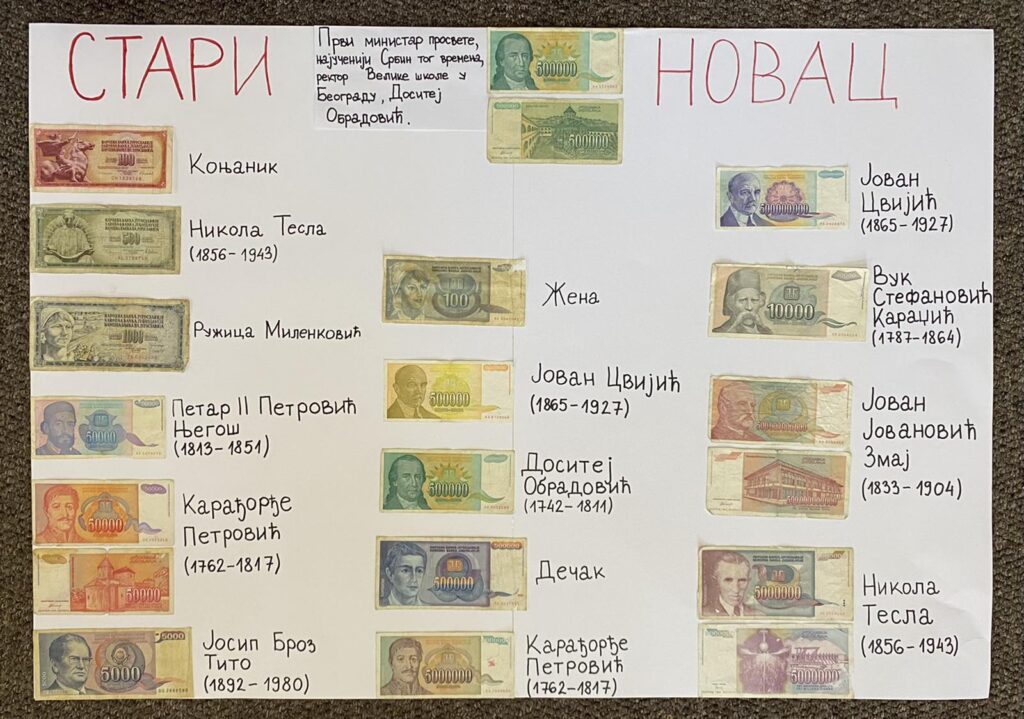 СТАРИ
НОВАЦ
Први министар просвете,
најученији Србин тог времена,
ректор Велике школе у
Београду, Доситеј
Обрадовић.
500000
500000
100
Коњаник
500
Никола Тесла
(1856-1943)
1000
Ружица Миленковић
50000
Петар II Петровић
Његош
(1813-1851)
50000
Карађорђе
Петровић
(1762-1817)
50000
5000
5000
Јосип Броз
Тито
(1892-1980)
100
Жена
500000
Јован Цвијић
(1865-1927)
500000
Доситеј
Обрадовић
(1742-1811)
500000
Дечак
Карађорђе
Петровић
(1762-1817)
Јован
Цвијић
(1865-1927)
10000
Вук
Стефановић
Караџић
(1787-1864)
Јован
Јовановић
Змај
(1833-1904)
5000000
Никола
Тесла
(1856-1943)
5000000